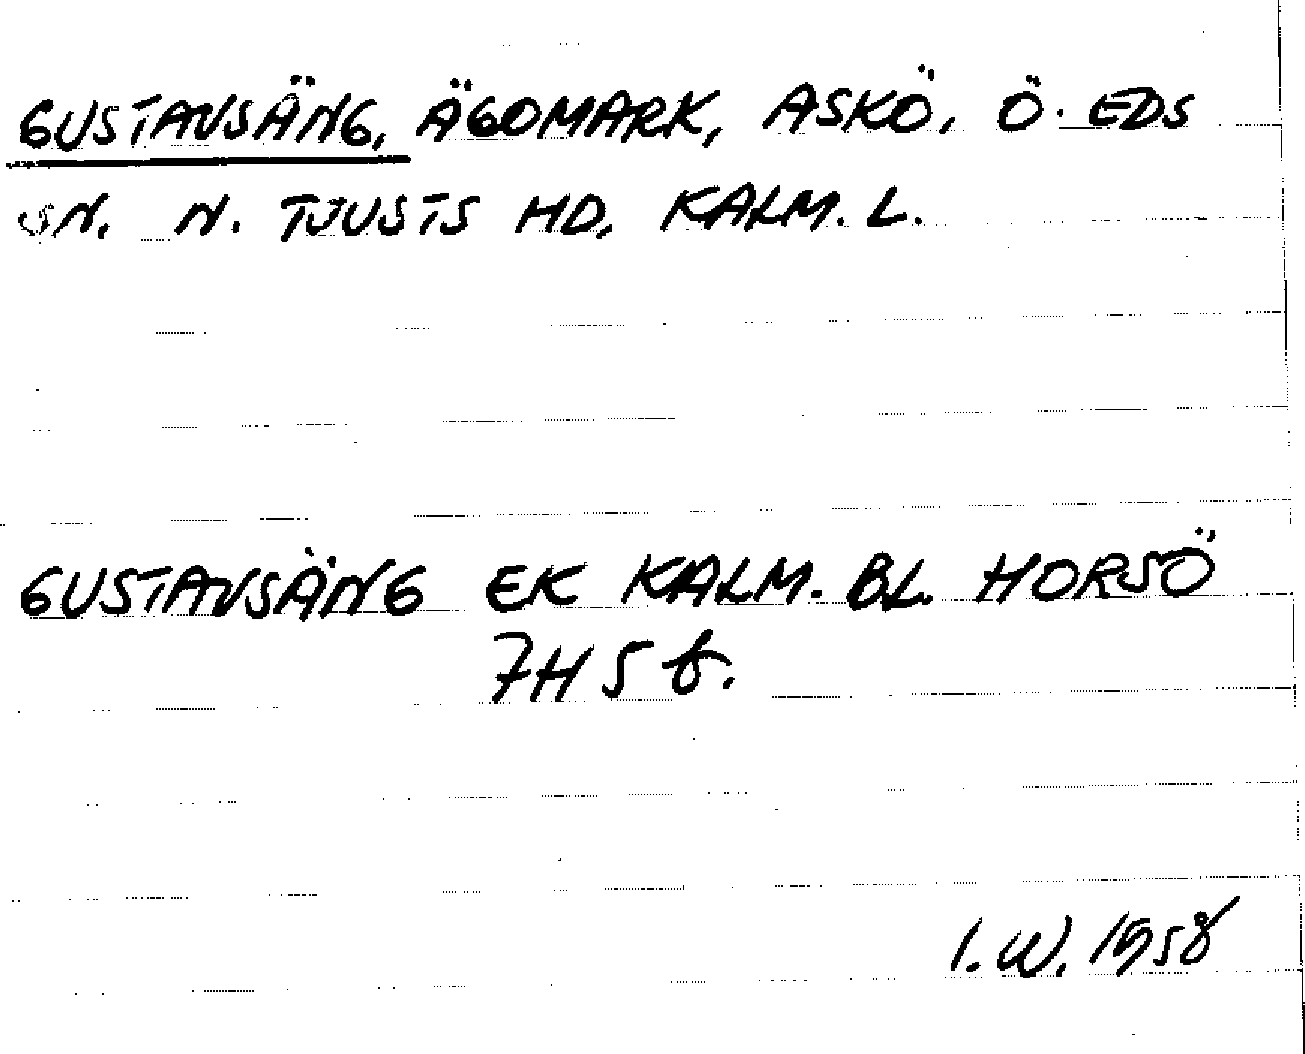 GUSTAVSÄNG, ÄGOMARK, ASKÖ, Ö. EDS
SN. N. TJUSTS HD, KALM. L.
GUSTAVSÄNG EK KALM. BL. HORSÖ
7H5f.
I.W. 1958